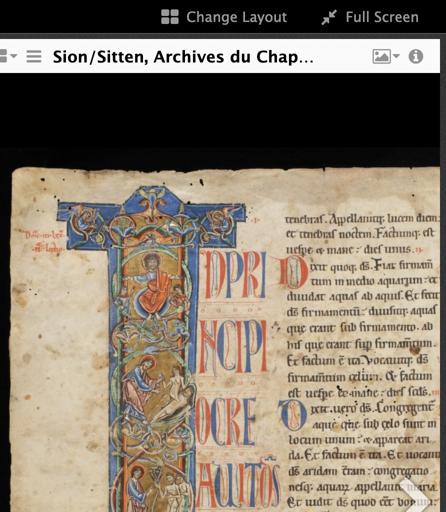 Change Layout
Full Screen
Sion/Sitten, Archives du Chap...
DPRI
NCIPI
OCRE
AUIT
tenebras. Appellauitq; lucem diem
et tenebras noctem. Factumq; est
uespe & mane: dies unus.
Dixit quoq; ds. Fiat firmam
tum in medio aquarum: &
diuidat aquas ab aquis. Et fecit
ds firmamentū: diuisitq; aquas
que erant sub firmamento. ab
his que erant sup firmamentum.
Et factum ē ita. Vocauitq; ds
firmamentum celum. & factum
est uespe & mane: dies scds.
Dixit uero ds. Congregent
aque que sub celo sunt in
locum unum: & appareat ari
da. Et factum ē ita. Et uocauit
ds aridam trram: congregatio
nesq; aquarum appellauit maria.
Et uidit ds quod ēet bonum: